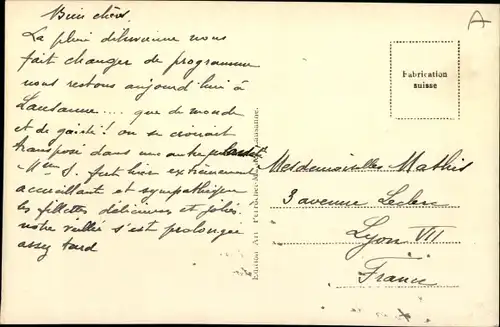 Bien chères.
La pluie diluvienne nous
fait changer de programme
nous restons aujourd'hui à
Lausanne.... que de monde
et de gaieté! on se croirait
transposé dans un autre
Mme J. fut hier extrêmement
accueillant et sympathique
les fillettes délicieuses et jolies.
notre veillée s'est prolongée
assez tard
A
Fabrication
suisse
Mesdemoiselles Mathis
3 avenue Leclerc
Lyon VII
France
Perrochet Lausanne.